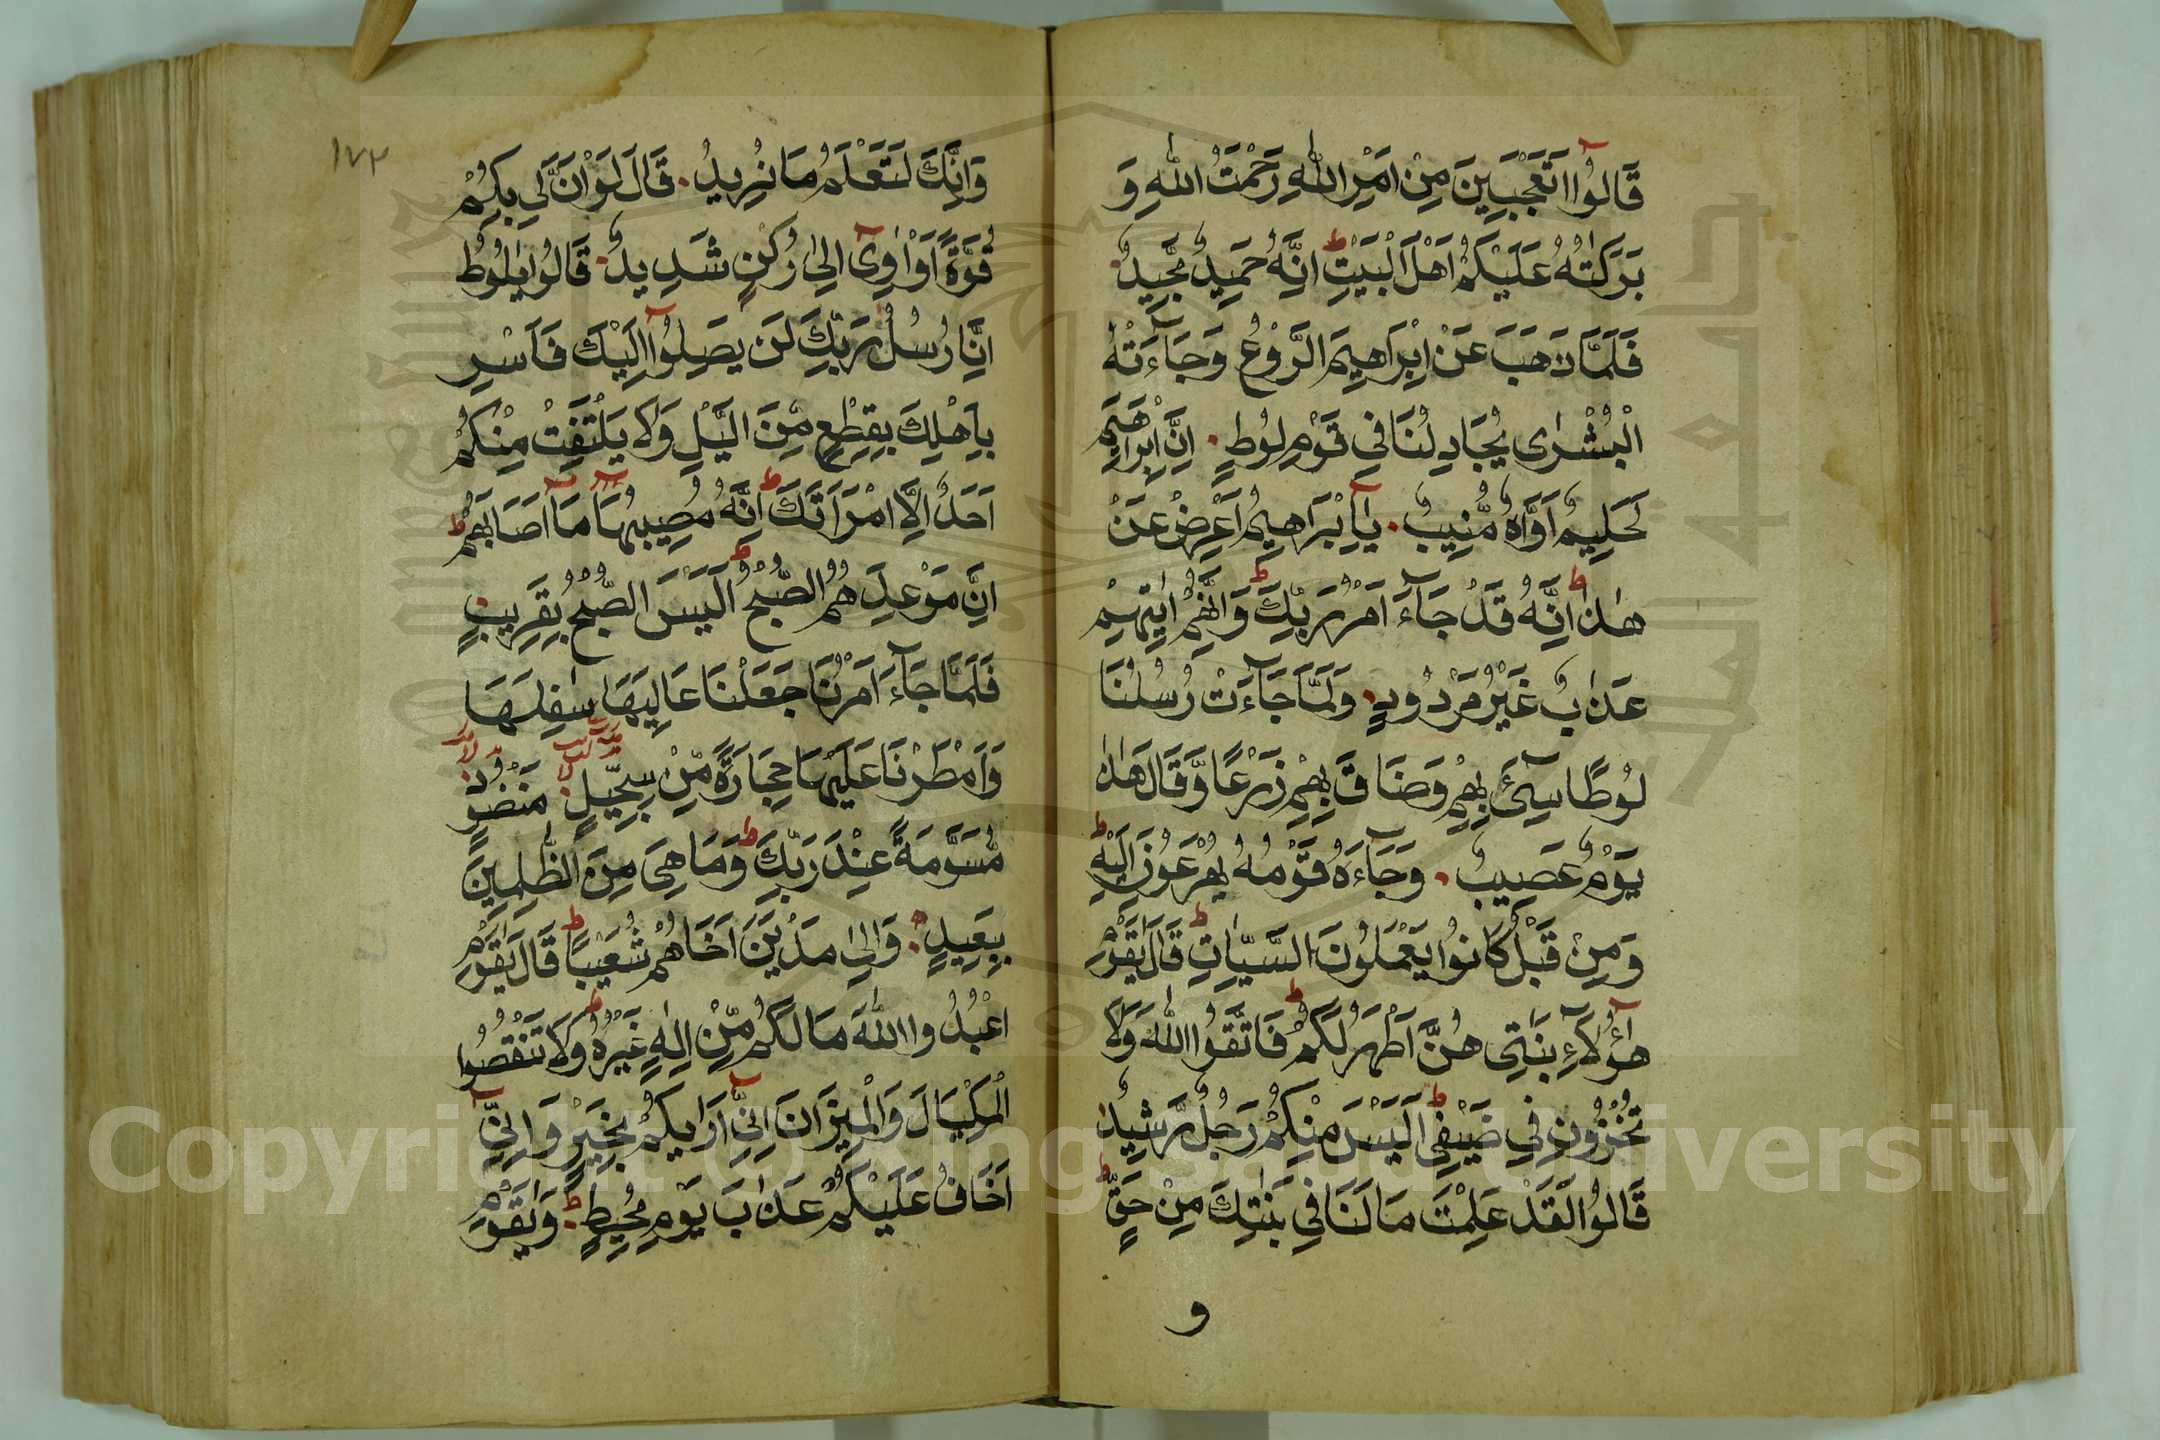 قَالُوْا اَتَعْجَبِيْنَ مِنْ اَمْرِ اللّٰهِ رَحْمَتُ اللّٰهِ وَ
بَرَكَتُهُ عَلَيْكُمْ اَهْلَ الْبَيْتِ ط اِنَّهُ حَمِيدٌ مَّجِيدٌ
فَلَمَّا ذَهَبَ عَنْ اِبْرَاهِيمَ الرَّوْعُ وَجَآءَتْهُ
الْبُشْرٰى يُجَادِلُنَا فِي قَوْمِ لُوطٍ . اِنَّ اِبْرَاهِيمَ
لَحَلِيمٌ اَوَّاهٌ مُّنِيبٌ . يٰٓاِبْرَاهِيمُ اَعْرِضْ عَنْ
هٰذَا ط اِنَّهُ قَدْ جَآءَ اَمْرُ رَبِّكَ ط وَاِنَّهُمْ اٰتِيهِمْ
عَذَابٌ غَيْرُ مَرْدُودٍ . وَلَمَّا جَآءَتْ رُسُلُنَا
لُوطًا سِيْٓءَ بِهِمْ وَضَاقَ بِهِمْ ذَرْعًا وَّقَالَ هٰذَا
يَوْمٌ عَصِيبٌ . وَجَآءَهُ قَوْمُهُ يُهْرَعُونَ اِلَيْهِ ط
وَمِنْ قَبْلُ كَانُوا يَعْمَلُونَ السَّيِّاٰتِ ط قَالَ يٰقَوْمِ
هٰٓؤُلَآءِ بَنٰتِى هُنَّ اَطْهَرُ لَكُمْ ط فَاتَّقُوا اللّٰهَ وَلَا
تُخْزُوْنِ فِي ضَيْفِى ط اَلَيْسَ مِنْكُمْ رَجُلٌ رَّشِيدٌ
قَالُوا لَقَدْ عَلِمْتَ مَا لَنَا فِي بَنٰتِكَ مِنْ حَقٍّ ط
و
١٧٢
وَاِنَّكَ لَتَعْلَمُ مَا نُرِيدُ . قَالَ لَوْ اَنَّ لِى بِكُمْ
قُوَّةً اَوْ اٰوِىٓ اِلٰى رُكْنٍ شَدِيدٍ . قَالُوا يٰلُوطُ
اِنَّا رُسُلُ رَبِّكَ لَنْ يَصِلُوْٓا اِلَيْكَ فَاَسْرِ
بِاَهْلِكَ بِقِطْعٍ مِّنَ الَّيْلِ وَلَا يَلْتَفِتْ مِنْكُمْ
اَحَدٌ اِلَّا امْرَاَتَكَ ط اِنَّهُ مُصِيبُهَا مَآ اَصَابَهُمْ ط
اِنَّ مَوْعِدَهُمُ الصُّبْحُ ط اَلَيْسَ الصُّبْحُ بِقَرِيبٍ
فَلَمَّا جَآءَ اَمْرُنَا جَعَلْنَا عَالِيَهَا سَافِلَهَا
وَاَمْطَرْنَا عَلَيْهَا حِجَارَةً مِّنْ سِجِّيلٍ . مَنْضُودٍ
مُّسَوَّمَةً عِنْدَ رَبِّكَ ط وَمَا هِىَ مِنَ الظّٰلِمِينَ
بِبَعِيدٍ . وَاِلٰى مَدْيَنَ اَخَاهُمْ شُعَيْبًا ط قَالَ يٰقَوْمِ
اعْبُدُوا اللّٰهَ مَا لَكُمْ مِّنْ اِلٰهٍ غَيْرُهُ ط وَلَا تَنْقُصُوا
الْمِكْيَالَ وَالْمِيزَانَ اِنِّىٓ اَرٰيكُمْ بِخَيْرٍ وَاِنِّىٓ
اَخَافُ عَلَيْكُمْ عَذَابَ يَوْمٍ مُحِيطٍ . وَيٰقَوْمِ
Copyright © King Saud University